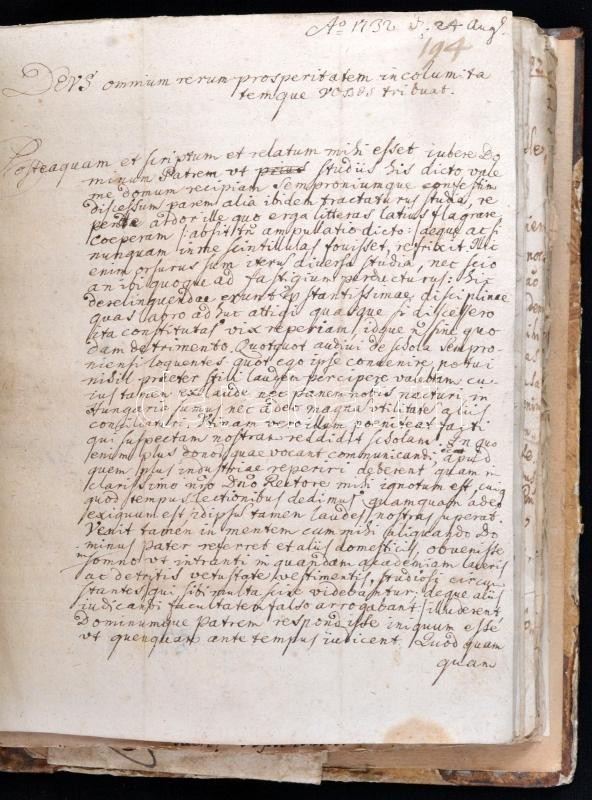 Aº 1732 d. 24 Aug.
194
Deus omnium rerum prosperitatem incolumita
temque vobis tribuat.
Posteaquam et scriptum et relatum mihi esset iubere Do
minum Patrem ut prius studiis his dicto vale
me domum recipiam Semproniumque confestim
discessum parem alia ibidem tractaturus studia, re
pente ardor ille quo erga litteras latius flagrare
coeperam /: absit
dicto :/ deque acsi
nunquam in me scintillas fovisset, refrixit. Hic
enim orsurus sum iterus diversa studia, nec scio
an ibi quoque ad fastigium perducturus: hic
derelinquendae erunt praestantissimae disciplinae
quas adhuc attigi quasque si discessero
ita constitutas vix reperiam, idque non sine quo
dam detrimento. Quotquot audivi de schola Sempro
niensi loquentes, quot ego ipse convenire potui
nihil praeter stili laudem percipere valebam cu
ius tamen ex laude nec panem nobis nacturi in
Hungaria sumus nec adeo magna utilitate aliis
Utinam vero illum poeniteat facti
qui suspectam nostram reddidit scholam. In quo
enim plus donor quae vocant communicandi apud
quem plus industriae reperiri deberent quam in
clarissimo nro Dno Rectore mihi ignotum est, cuiq
quod tempus lectionibus dedimus, quamquam adeo
exiguum est id ipsus tamen laudes nostras superat.
Venit tamen in mentem cum mihi aliquando Do
minus Pater referret et aliis domesticis, obvenisse
somno ut intranti in quandam academiam laceris
ac detritis vetustate vestimentis, studiosi circum
stantes qui sibi multa scire videbantur: deque aliis
iudicandi facultatem falso arrogabant, illuderent
Dominumque Patrem respondisse iniquum esse
ut quenquam ante tempus iudicent. Quod quam
quam